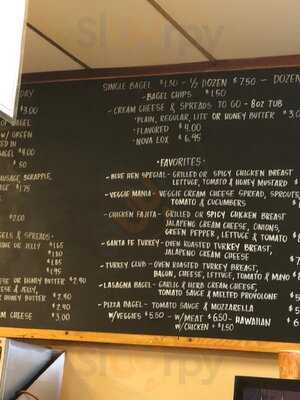 DAY
$3.00
OF BAGEL
W/ GREEN
ED IN
BAGEL $4.00
$.50
AUSAGE, SCRAPPLE,
AGE $1.75
$2.00
GELS & SPREADS-
NE OR JELLY $1.65
$1.30
$1.85
$1.95
SE OR HONEY BUTTER $2.40
ESE & JELLY,
HONEY BUTTER $2.90
$2.90
AM CHEESE $3.00
SINGLE BAGEL $1.30 - ½ DOZEN $7.50 - DOZEN
-BAGEL CHIPS $1.50
-CREAM CHEESE & SPREADS TO GO - 8oz TUB
*PLAIN, REGULAR, LITE OR HONEY BUTTER $3.0
*FLAVORED $4.00
*NOVA LOX $6.95
·FAVORITES·
-BLUE HEN SPECIAL- GRILLED OR SPICY CHICKEN BREAST
LETTUCE, TOMATO & HONEY MUSTARD $
-VEGGIE MANIA- VEGGIE CREAM CHEESE SPREAD, SPROUTS,
TOMATO & CUCUMBERS $
-CHICKEN FAJITA- GRILLED OR SPICY CHICKEN BREAST
JALAPENO CREAM CHEESE, ONIONS,
GREEN PEPPER, LETTUCE & TOMATO $
-SANTA FE TURKEY- OVEN ROASTED TURKEY BREAST,
JALAPENO CREAM CHEESE $7
-TURKEY CLUB- OVEN ROASTED TURKEY BREAST,
BACON, CHEESE, LETTUCE, TOMATO & MAYO $8
-LASAGNA BAGEL- GARLIC & HERB CREAM CHEESE,
TOMATO SAUCE & MELTED PROVOLONE $5
-PIZZA BAGEL- TOMATO SAUCE & MOZZARELLA $5
W/VEGGIES $5.50 - W/MEAT $6.50 - HAWAIIAN $
W/CHICKEN +$1.50